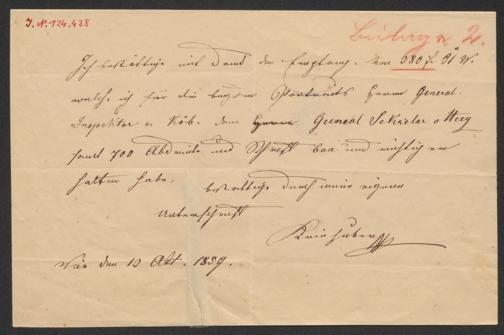 J. N. 124.428
Beilage 2.
Ich bestättige mit damit den Empfang von 380 f. ÖW.
welche ich für die beyden Portraits Herrn General-
Inspektor v. Köb. dem Herrn General Schizler v
samt 700 Abdrücke und Schrift bar und richtig er
halten habe. bestättige durch meine eigene
Unterschrift
Kriehuber
Wien den 13 Okt. 1859.